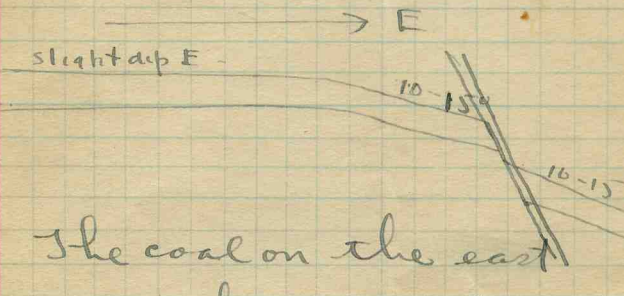 E
slight dip E
10-15°
10-15
The coal on the east